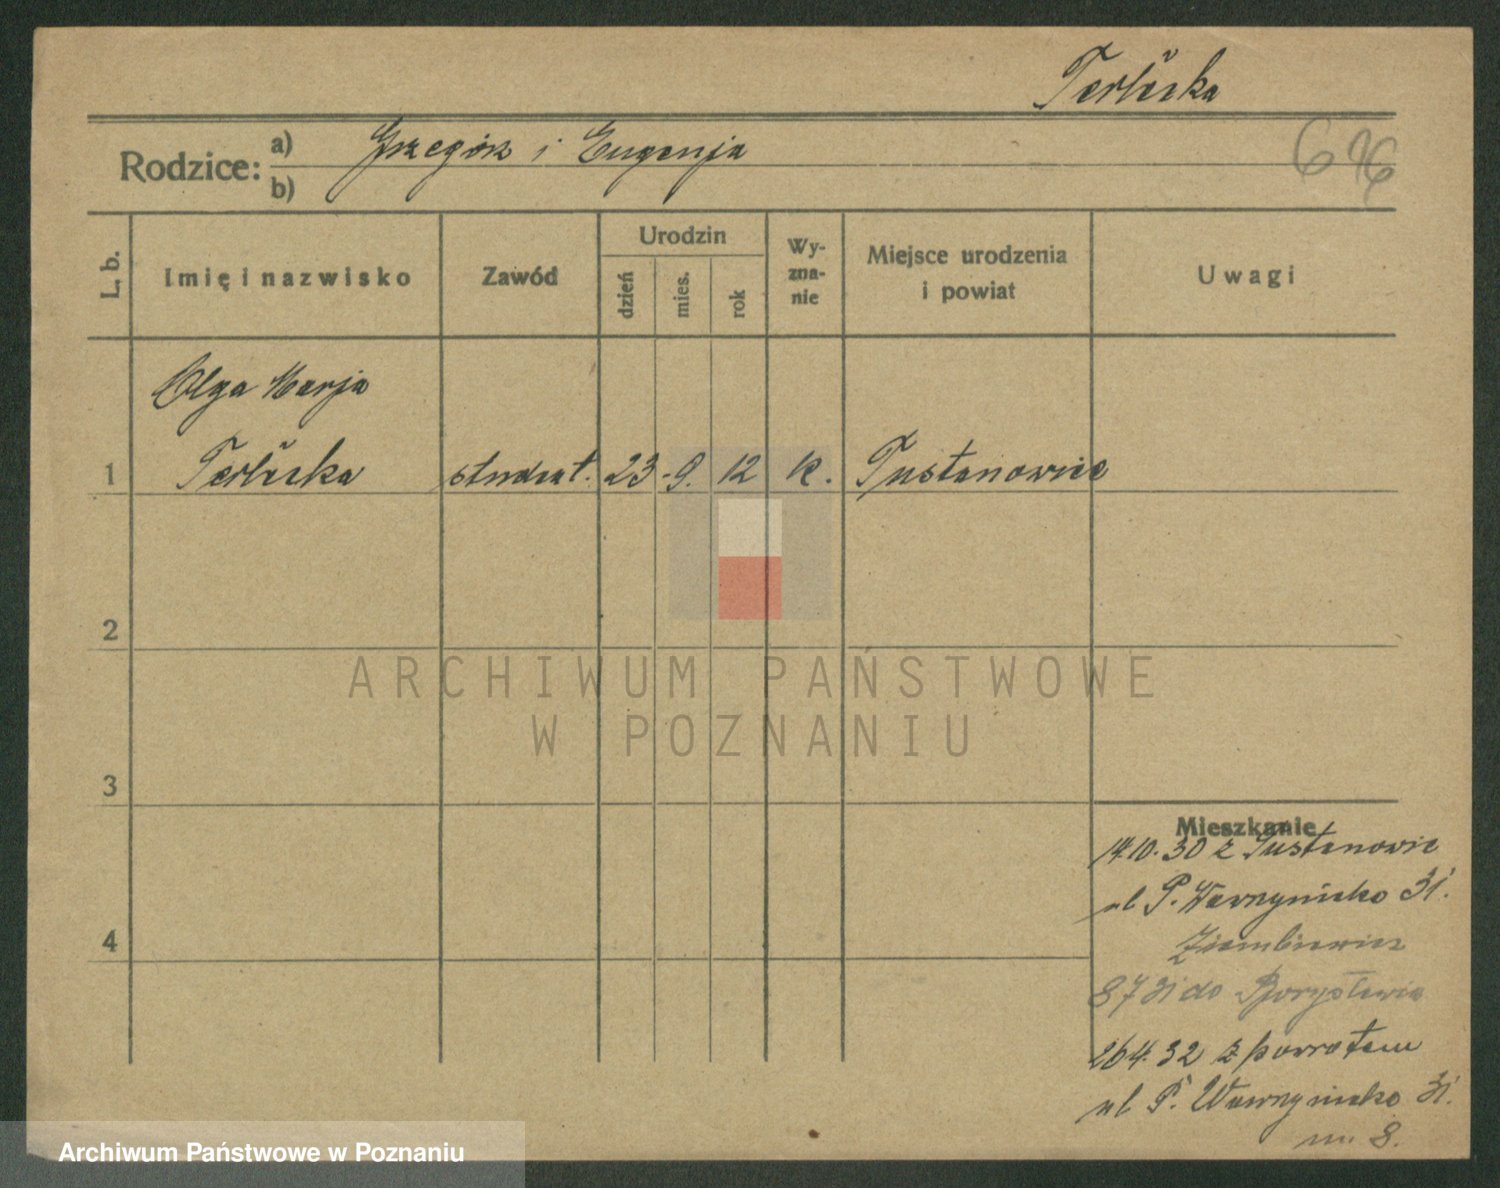 Terlecka
Rodzice: a) Grzegórz i Eugenja
b)
696
L. b.
Imię i nazwisko
Zawód
Urodzin
dzień
mies.
rok
Wy-
zna-
nie
Miejsce urodzenia
i powiat
Uwagi
Olga Marja
1 Terlecka student. 23 - 9. 12 k. Tustanowice
2
3
4
ARCHIWUM PAŃSTWOWE
W POZNANIU
Mieszkanie
14.10.30 z Tustanowic
ul P. Wawrzyniaka 31.
Ziembiewicz
8 7 31 do Borysławia
26 4.32 z powrotem
ul P. Wawrzyniaka 31.
m. 8.
Archiwum Państwowe w Poznaniu